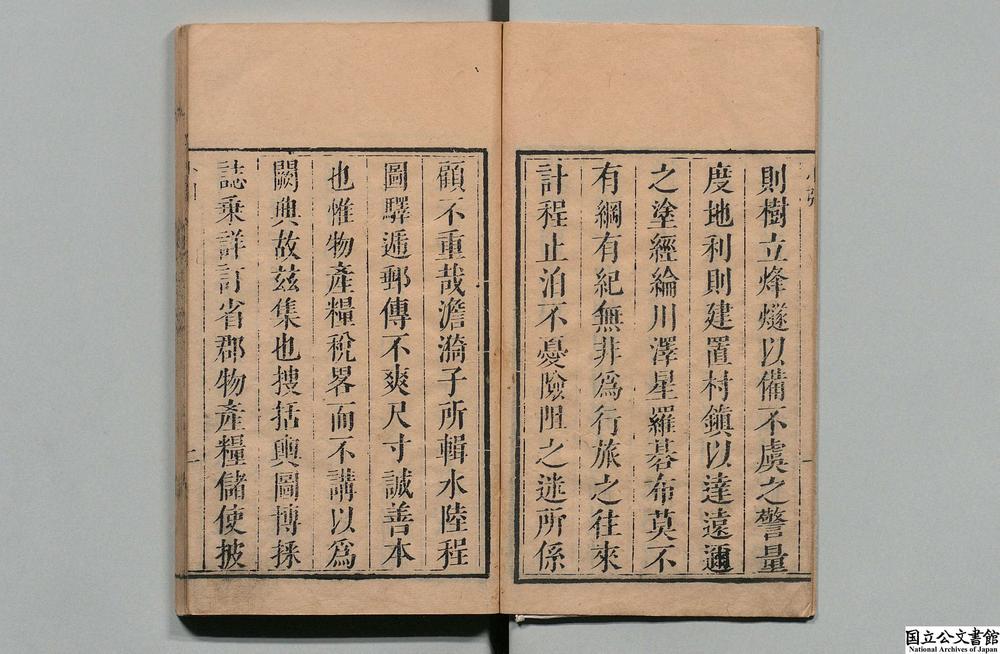 則樹立烽燧以備不虞之警量
度地利則建置村鎮以達遠邇
之塗經綸川澤星羅碁布莫不
有綱有紀無非爲行旅之往來
計程止泊不憂險阻之迷所係
顧不重哉澹漪子所輯水陸程
圖驛遞郵傳不爽尺寸誠善本
也惟物產糧稅畧而不講以爲
闕典故茲集也搜括輿圖博採
誌乗詳訂省郡物產糧儲使披
国立公文書館
National Archives of Japan